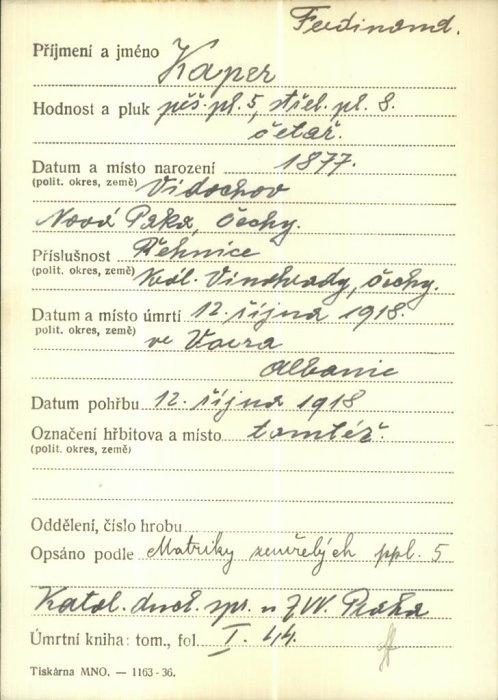 Ferdinand.
Příjmení a jméno Kaper
Hodnost a pluk pěš. pl. 5, střel. pl. 8.
četař.
Datum a místo narození 1877.
(polit. okres, země) Vidochov
Nová Paka, Čechy.
Příslušnost Řehnice
(polit. okres, země) Král. Vinohrady, Čechy.
Datum a místo úmrtí 12. října 1918.
polit. okres, země) ve Vacra
Albanie
Datum pohřbu 12. října 1918
Označení hřbitova a místo tamtéž.
(polit. okres, země)
Oddělení, číslo hrobu
Opsáno podle Matriky zemřelých ppl. 5
Katol. duch. spr. u ZVV. Praha
Úmrtní kniha: tom., fol. I. 44.
Tiskárna MNO. — 1163-36.